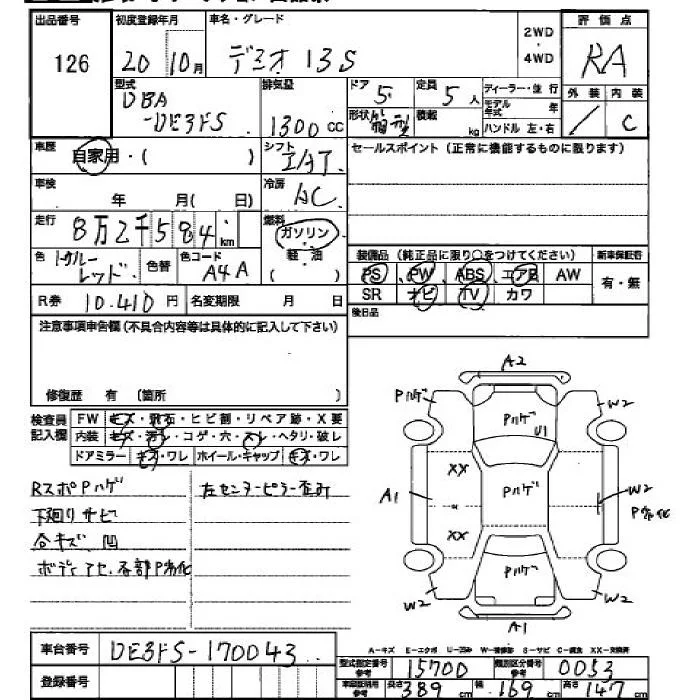 出品番号 初度登録年月 車名・グレード 2WD・4WD 評価点
126 20年10月 デミオ 13S RA
外装 内装
／ C
型式 排気量 ドア 定員 ディーラー・並行
DBA-DE3FS 1300cc 5 5人 モデル年式 年
形状 箱型 積載 kg ハンドル 左・右
車歴 自家用・( ) シフト IAT セールスポイント(正常に機能するものに限ります)
車検 年 月(日) 冷房 AC
走行 8万2千584km 燃料 ガソリン 軽・油 ( )
色 トゥルーレッド 色替 色コード A4A
装備品(純正品に限り○をつけてください) 新車保証書
PS PW ABS エアB AW 有・無
SR ナビ TV カワ
R券 10.410円 名変期限 月 日
後日品
注意事項申告欄(不具合内容等は具体的に記入して下さい)
修復歴 有 (箇所 )
検査員記入欄 FW キズ・飛石・ヒビ割・リペア跡・X要
内装 キズ・汚レ・コゲ・穴・スレ・ヘタリ・破レ
ドアミラー キズ・ワレ ホイール・キャップ キズ・ワレ
RスポPハゲ 左センターピラー歪み
下廻りサビ
合キズ、凹
ボディアセ、各部P劣化
A2
Pハゲ Pハゲ W2
U1
XX
A1 Pハゲ W2
P劣化
XX
Pハゲ
W2 W2
A1
A-キズ E-エクボ U-凹み W-補修跡 S-サビ C-腐食 XX-交換済
車台番号 DE3FS-170043
型式指定番号 参考 15700 類別区分番号 参考 0053
登録番号
車車証明用 参考 長さ 389cm 幅 169cm 高さ 147cm